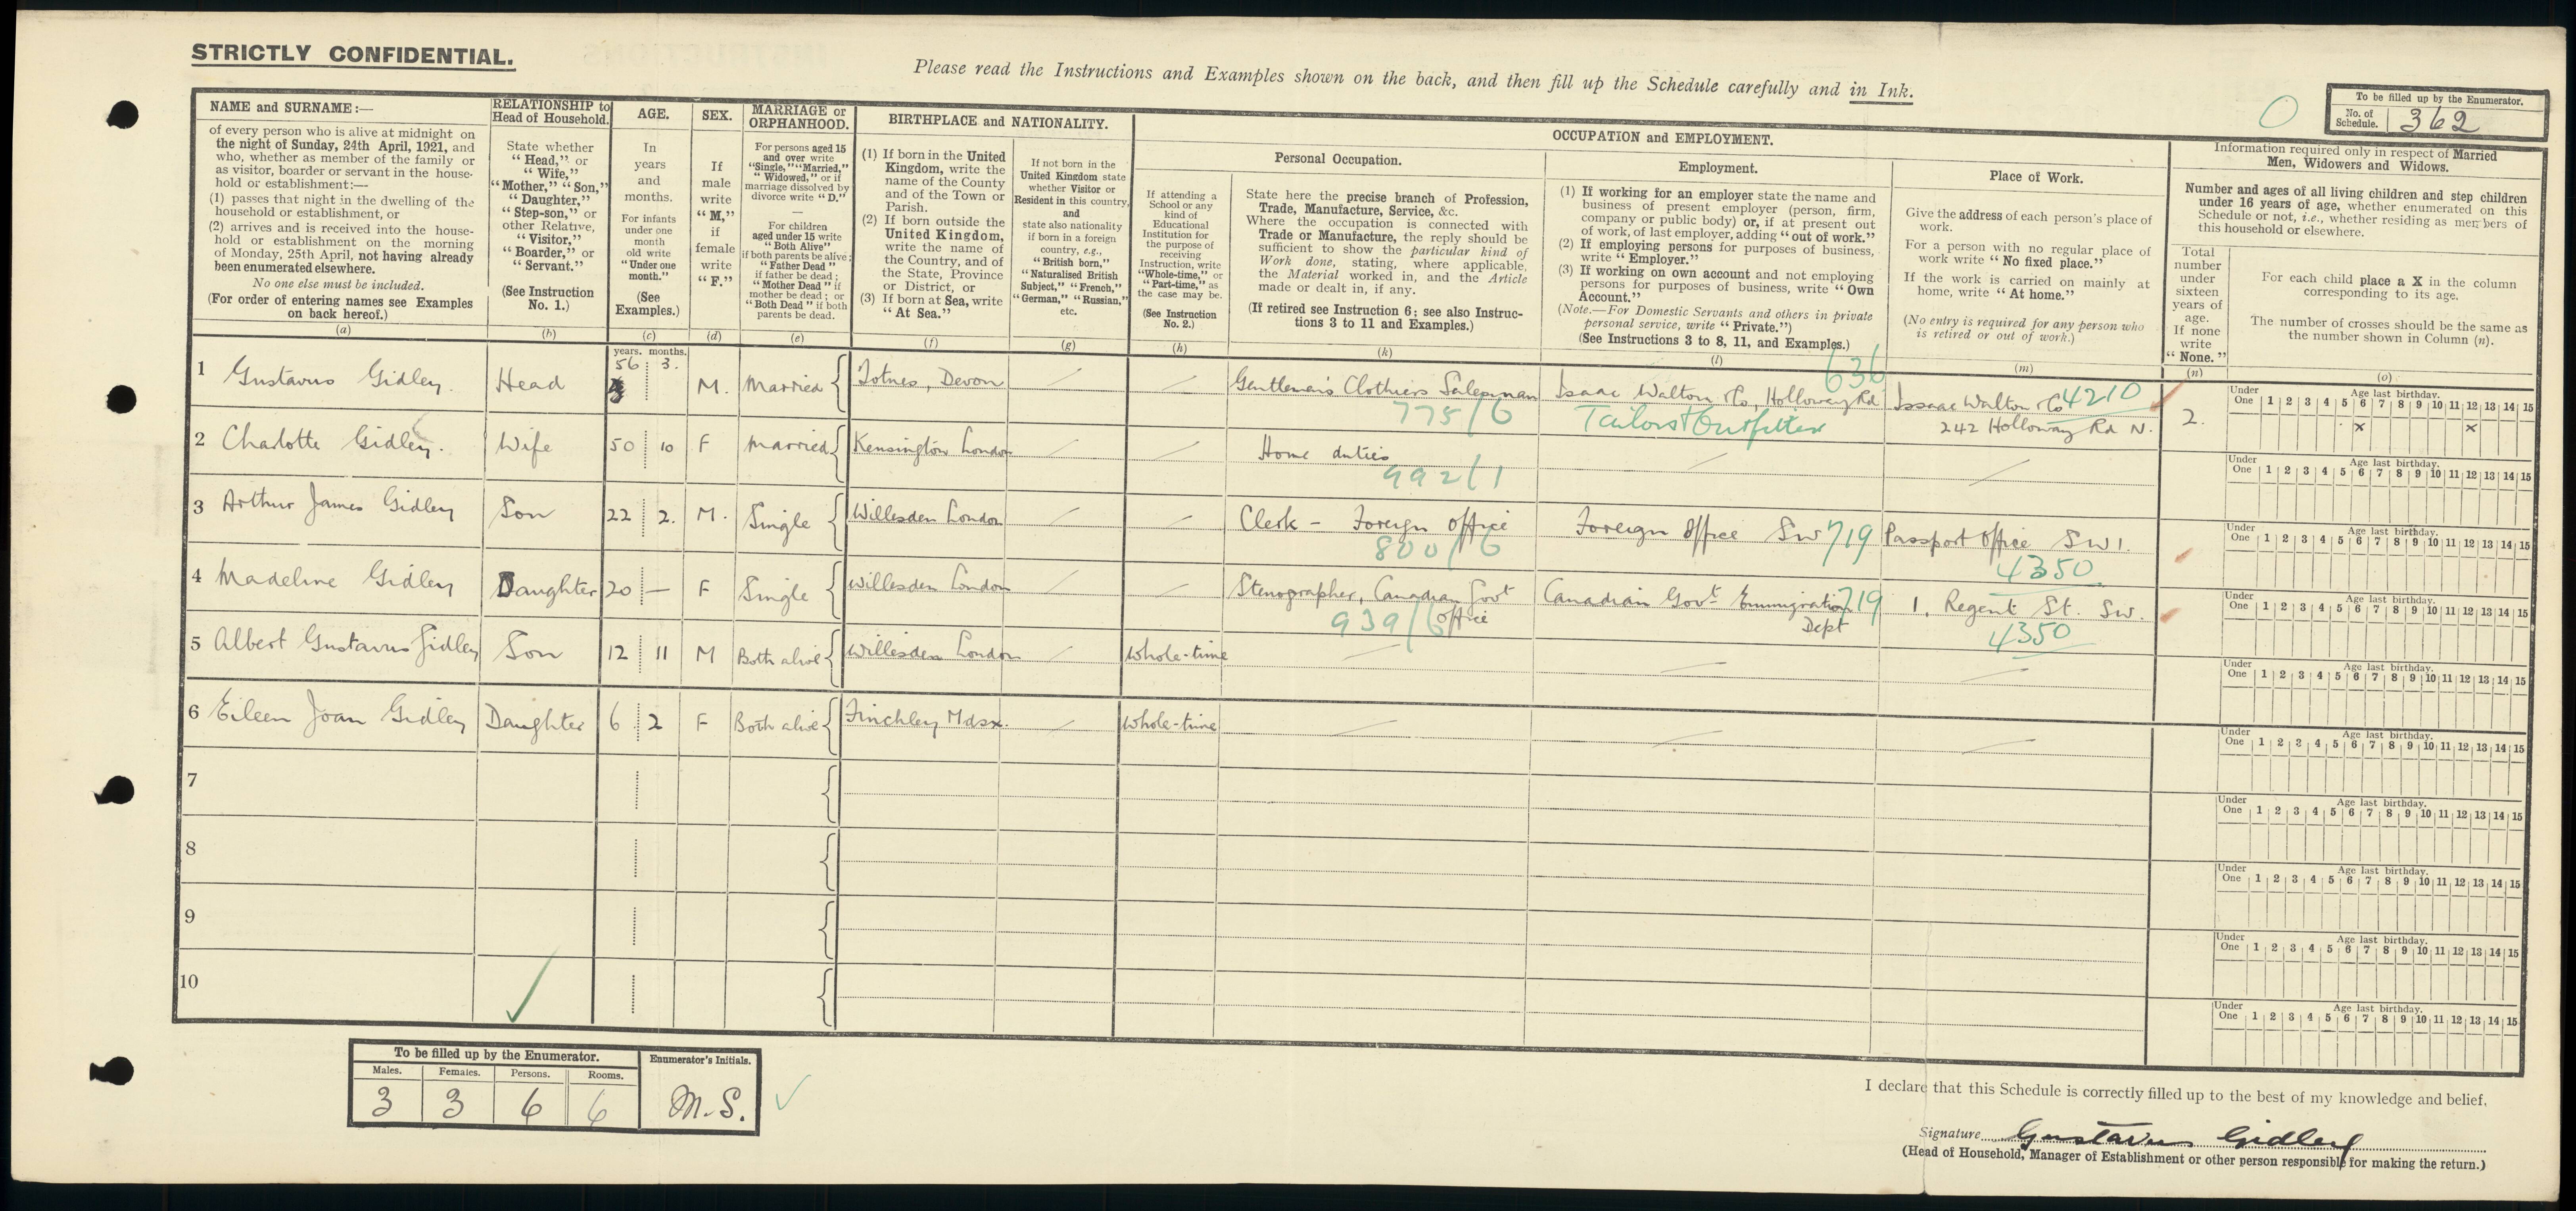 STRICTLY CONFIDENTIAL.
Please read the Instructions and Examples shown on the back, and then fill up the Schedule carefully and in Ink.
To be filled up by the Enumerator.
No. of Schedule. 362
NAME and SURNAME:—
of every person who is alive at midnight on
the night of Sunday, 24th April, 1921, and
who, whether as member of the family or
as visitor, boarder or servant in the house-
hold or establishment:—
(1) passes that night in the dwelling of the
household or establishment, or
(2) arrives and is received into the house-
hold or establishment on the morning
of Monday, 25th April, not having already
been enumerated elsewhere.
No one else must be included.
(For order of entering names see Examples
on back hereof.)
(a)
RELATIONSHIP to
Head of Household.
State whether
"Head," or
"Wife,"
"Mother," "Son,"
"Daughter,"
"Step-son," or
other Relative,
"Visitor,"
"Boarder," or
"Servant."
(See Instruction
No. 1.)
(b)
AGE.
In
years
and
months.
For infants
under one
month
old write
"Under one
month."
(See
Examples.)
(c)
SEX.
If
male
write
"M,"
if
female
write
"F."
(d)
MARRIAGE or
ORPHANHOOD.
For persons aged 15
and over write
"Single," "Married,"
"Widowed," or if
marriage dissolved by
divorce write "D."
—
For children
aged under 15 write
"Both Alive"
if both parents be alive;
"Father Dead"
if father be dead;
"Mother Dead" if
mother be dead; or
"Both Dead" if both
parents be dead.
(e)
BIRTHPLACE and NATIONALITY.
(1) If born in the United
Kingdom, write the
name of the County
and of the Town or
Parish.
(2) If born outside the
United Kingdom,
write the name of
the Country, and of
the State, Province
or District, or
(3) If born at Sea, write
"At Sea."
(f)
If not born in the
United Kingdom state
whether Visitor or
Resident in this country,
and
state also nationality
if born in a foreign
country, e.g.,
"British born,"
"Naturalised British
Subject," "French,"
"German," "Russian,"
etc.
(g)
OCCUPATION and EMPLOYMENT.
Personal Occupation.
If attending a
School or any
kind of
Educational
Institution for
the purpose of
receiving
Instruction, write
"Whole-time," or
"Part-time," as
the case may be.
(See Instruction
No. 2.)
(h)
State here the precise branch of Profession,
Trade, Manufacture, Service, &c.
Where the occupation is connected with
Trade or Manufacture, the reply should be
sufficient to show the particular kind of
Work done, stating, where applicable,
the Material worked in, and the Article
made or dealt in, if any.
(If retired see Instruction 6; see also Instruc-
tions 3 to 11 and Examples.)
(k)
Employment.
(1) If working for an employer state the name and
business of present employer (person, firm,
company or public body) or, if at present out
of work, of last employer, adding "out of work."
(2) If employing persons for purposes of business,
write "Employer."
(3) If working on own account and not employing
persons for purposes of business, write "Own
Account."
(Note.—For Domestic Servants and others in private
personal service, write "Private.")
(See Instructions 3 to 8, 11, and Examples.)
(l)
Place of Work.
Give the address of each person's place of
work.
For a person with no regular place of
work write "No fixed place."
If the work is carried on mainly at
home, write "At home."
(No entry is required for any person who
is retired or out of work.)
(m)
Information required only in respect of Married
Men, Widowers and Widows.
Number and ages of all living children and step children
under 16 years of age, whether enumerated on this
Schedule or not, i.e., whether residing as members of
this household or elsewhere.
Total
number
under
sixteen
years of
age.
If none
write
"None."
(n)
For each child place a X in the column
corresponding to its age.
The number of crosses should be the same as
the number shown in Column (n).
(o)
years. months.
1 Gustavus Gidley. Head 56 3. M. Married Totnes, Devon Gentlemen's Clothiers Salesman 775/6 Isaac Walton & Co, Holloway Rd 636 Tailors & Outfitter Issac Walton & Co 4210 242 Holloway Rd N. 2.
Under One 1 2 3 4 5 6 7 8 9 10 11 12 13 14 15 Age last birthday. x x
2 Charlotte Gidley. Wife 50 10 F Married Kensington London Home duties 992/1
Under One 1 2 3 4 5 6 7 8 9 10 11 12 13 14 15 Age last birthday.
3 Arthur James Gidley Son 22 2. M. Single Willesden London Clerk - Foreign office 800/6 Foreign Office SW 719 Passport Office SW1. 4350
Under One 1 2 3 4 5 6 7 8 9 10 11 12 13 14 15 Age last birthday.
4 Madeline Gidley Daughter 20 — F Single Willesden London Stenographer, Canadian Govt office 939/6 Canadian Govt. Emmigration Dept 719 1, Regent St. SW. 4350
Under One 1 2 3 4 5 6 7 8 9 10 11 12 13 14 15 Age last birthday.
5 Albert Gustavus Gidley Son 12 11 M Both alive Willesden London Whole-time
Under One 1 2 3 4 5 6 7 8 9 10 11 12 13 14 15 Age last birthday.
6 Eileen Joan Gidley Daughter 6 2 F Both alive Finchley Mdsx. Whole-time
Under One 1 2 3 4 5 6 7 8 9 10 11 12 13 14 15 Age last birthday.
7
Under One 1 2 3 4 5 6 7 8 9 10 11 12 13 14 15 Age last birthday.
8
Under One 1 2 3 4 5 6 7 8 9 10 11 12 13 14 15 Age last birthday.
9
Under One 1 2 3 4 5 6 7 8 9 10 11 12 13 14 15 Age last birthday.
10
Under One 1 2 3 4 5 6 7 8 9 10 11 12 13 14 15 Age last birthday.
To be filled up by the Enumerator.
Males. Females. Persons. Rooms.
3 3 6 6
Enumerator's Initials.
M.S.
I declare that this Schedule is correctly filled up to the best of my knowledge and belief,
Signature Gustavus Gidley
(Head of Household, Manager of Establishment or other person responsible for making the return.)